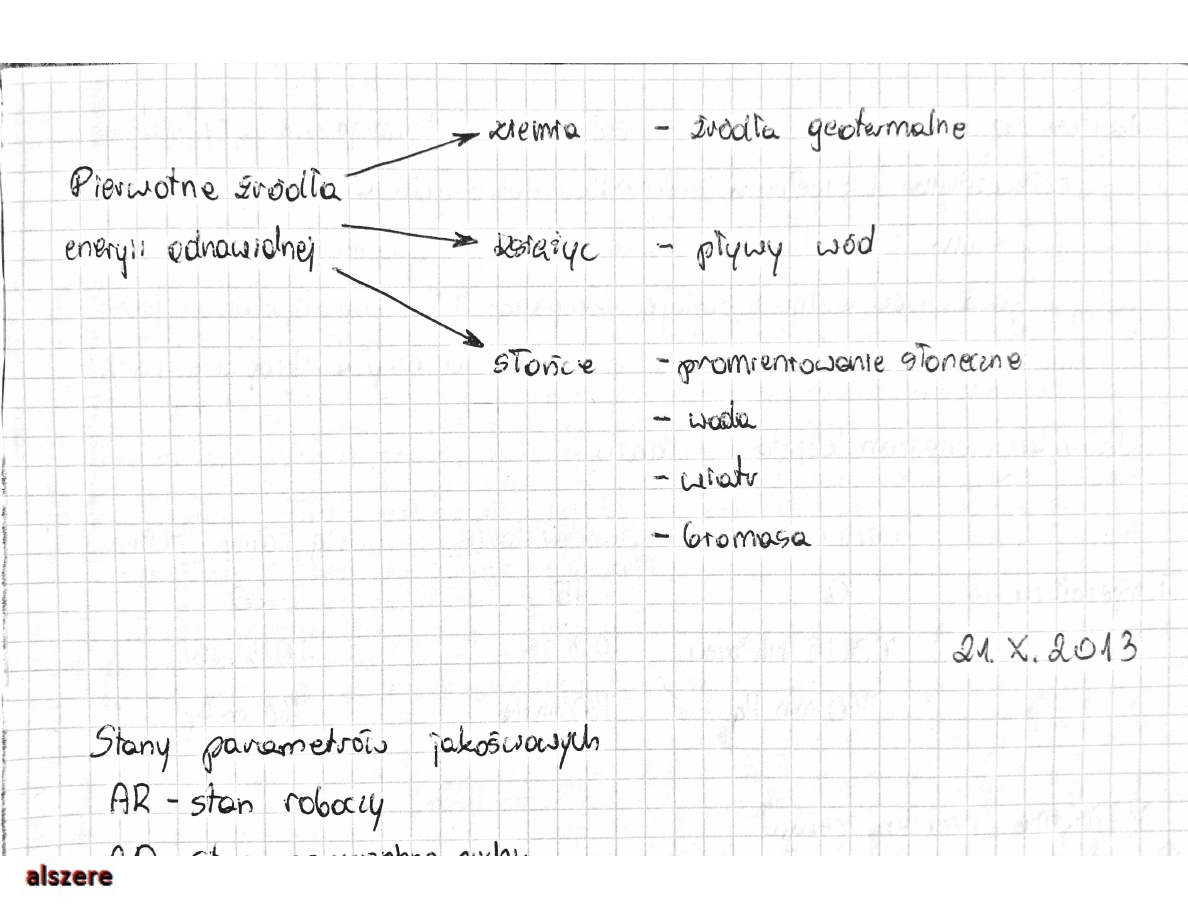 ziemia - źródła geotermalne
Pierwotne źródła
energii odnawialnej
księżyc - pływy wód
słońce - promieniowanie słoneczne
- woda
- wiatr
- biomasa
21. X. 2013
Stany parametrów jakościowych
AR - stan roboczy
alszere